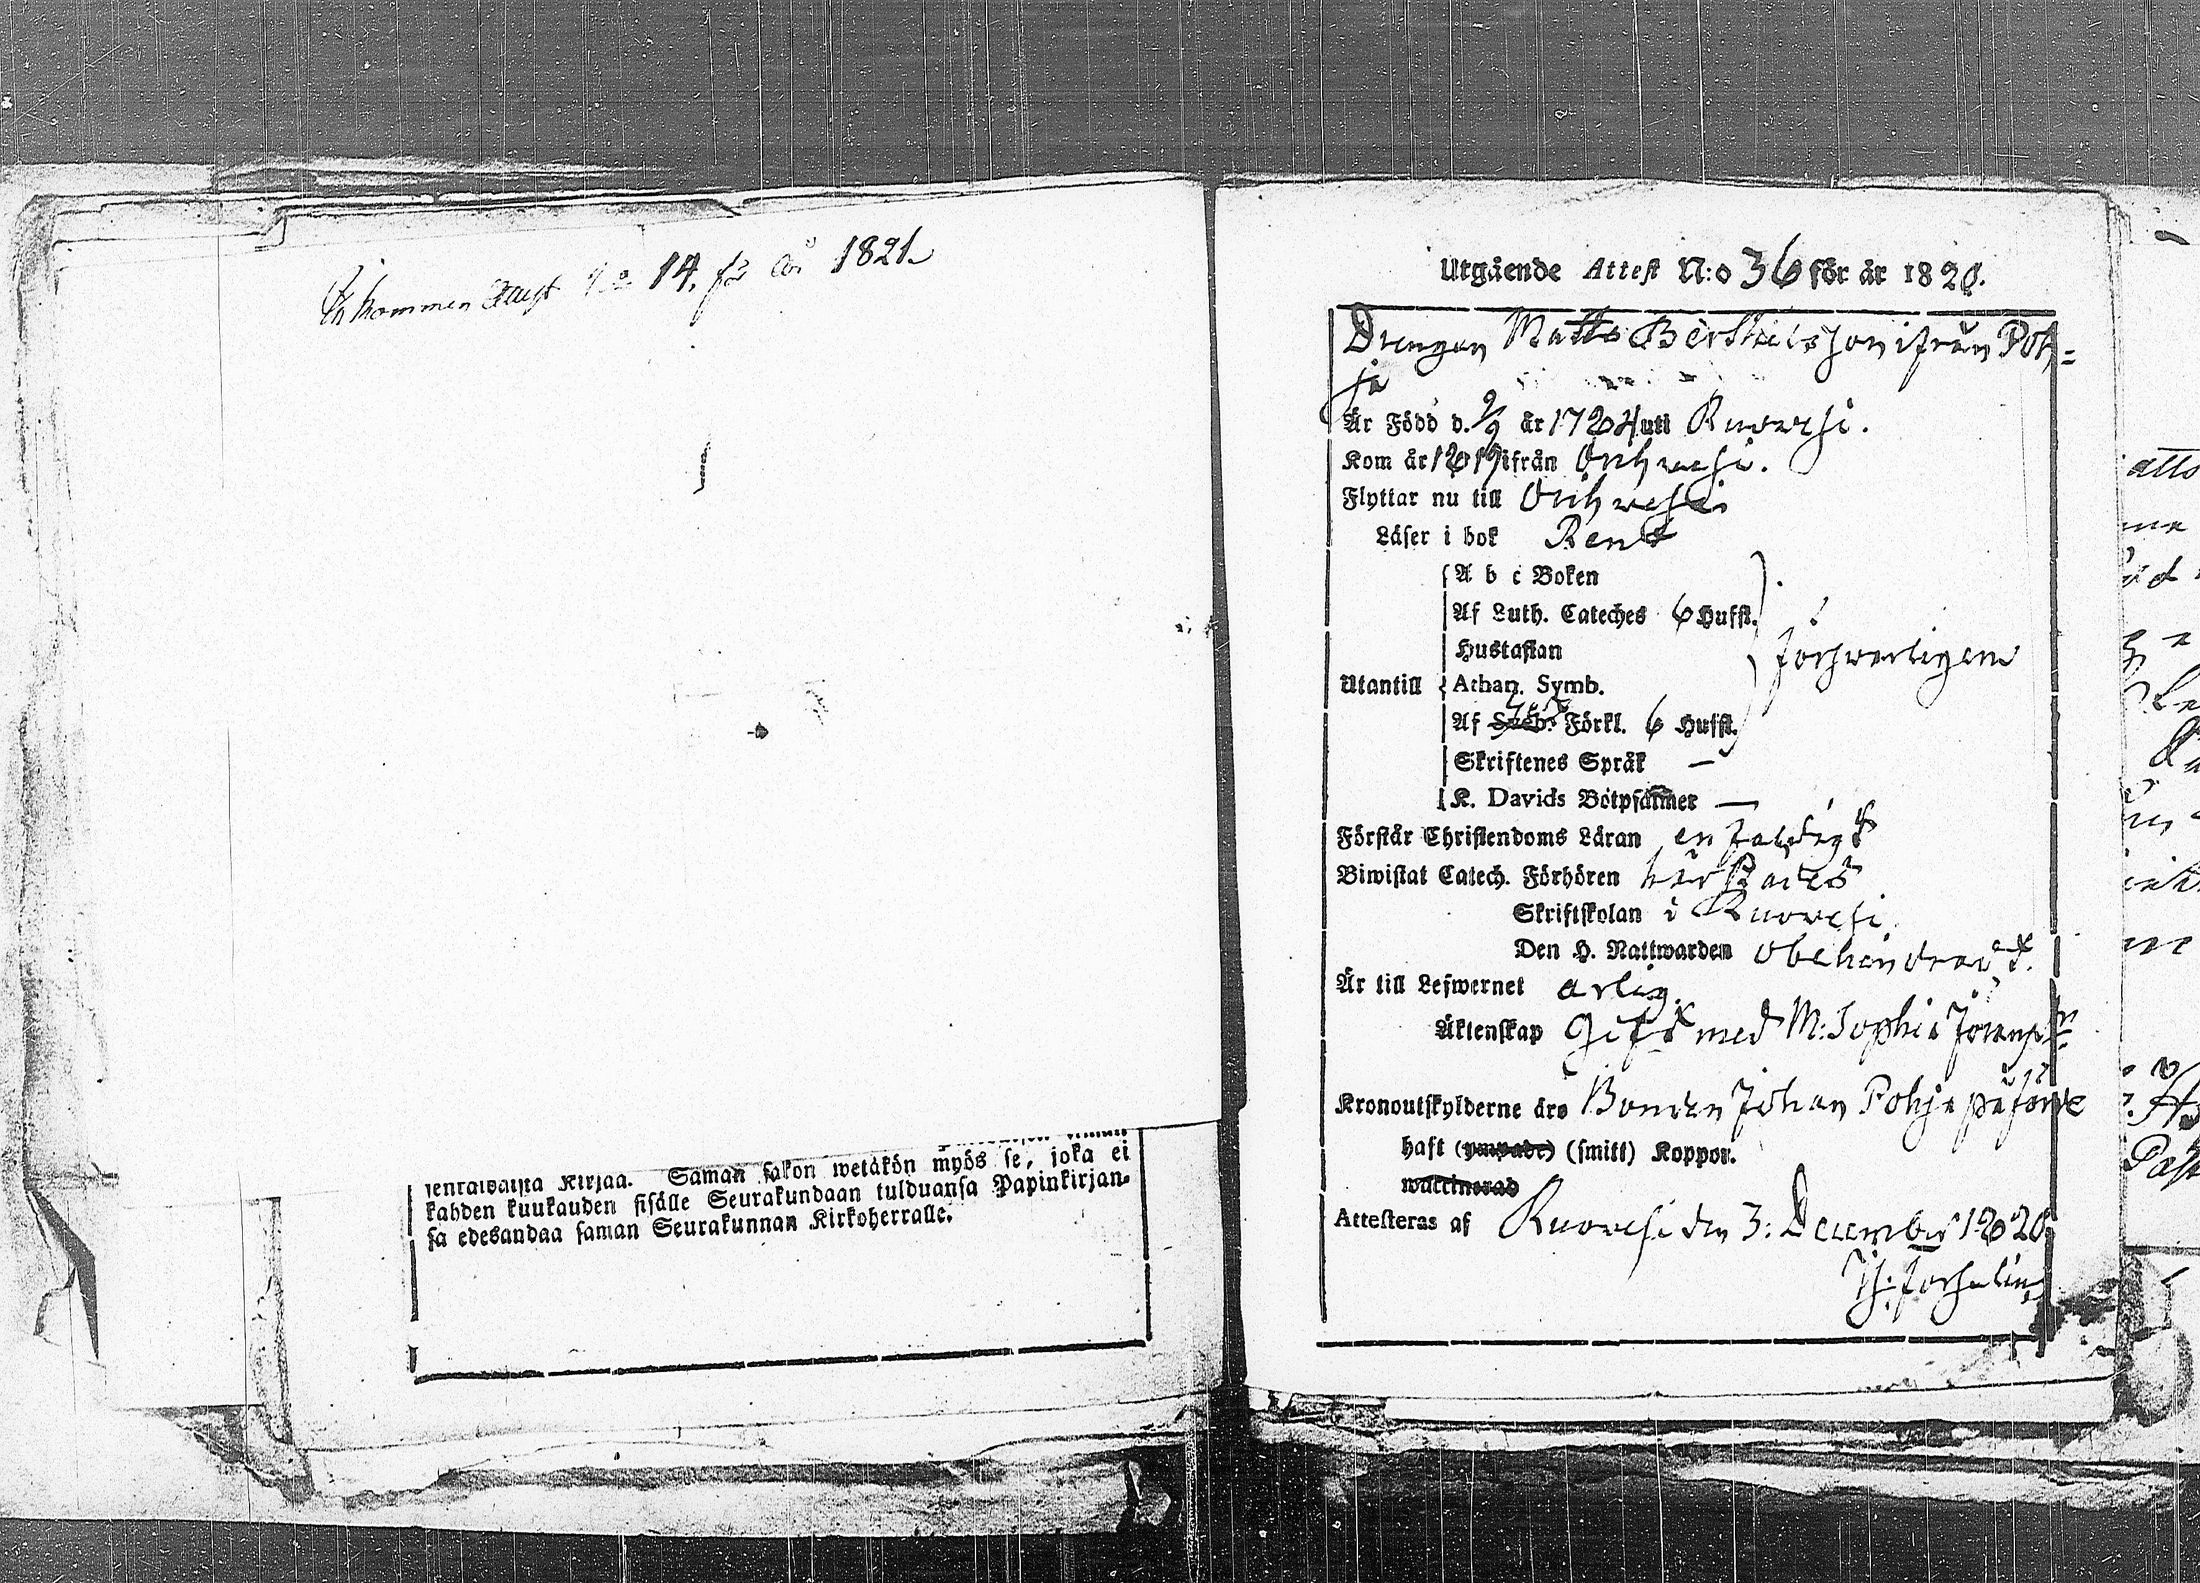 Inkommen Attest N:o 14. för år 1821.
senrawaista Kirjaa. Saman sakon wetäkön myös se, joka ei
kahden kuukauden sisälle Seurakundaan tulduansa Papinkirjan-
sa edesandaa saman Seurakunnan Kirkoherralle.
Utgående Attest N:o 36 för år 1820.
Drengen Matts Berthelsson ifrån Poh=
ja
Är Född d. 9/9 år 1784 uti Ruovesi.
Kom år 1819 ifrån Orihvesi.
Flyttar nu till Orihvesi
Läser i bok Rent
A b c Boken
Af Luth. Cateches 6 Hufst.
Hustaflan
försvarligen
Utantill Athan. Symb.
Af Sveb. Förkl. 6 Hufst.
Skriftenes Språk —
K. Davids Botpsalmer —
Förstår Christendoms Läran enfaldigt
Biwistat Catech. Förhören härstädes
Skriftskolan i Ruovesi
Den H. Nattwarden obehindradt.
Är till Lefwernet ärlig.
Äktenskap Gift med M: Sophia
Kronoutskylderne äro Bonden Johan Pohja påförde
haft (ympade) (smitt) Koppor.
waccinerad
Attesteras af Ruovesi den 3: December 1820.